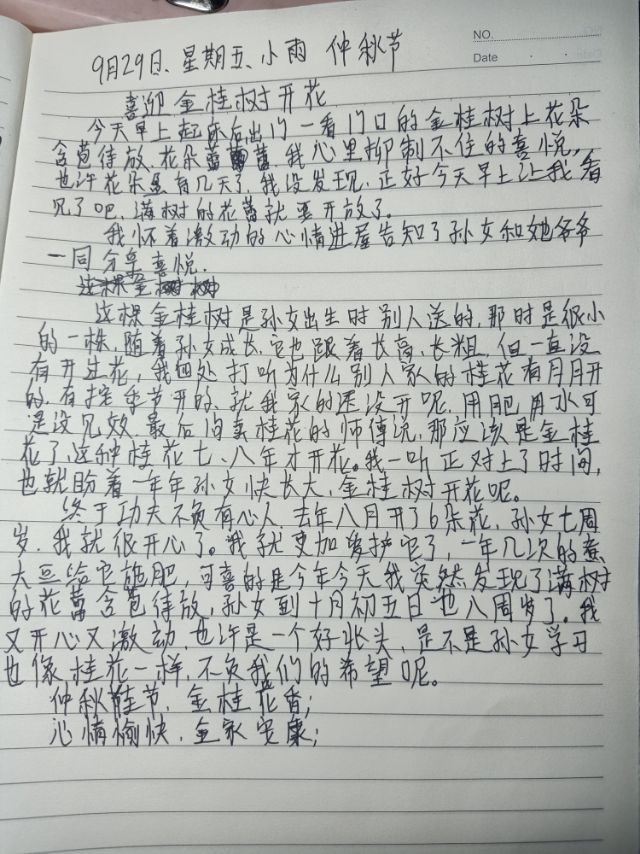 NO.
Date
9月29日、星期五、小雨 仲秋节
喜迎金桂树开花
今天早上起床后出门一看门口的金桂树上花朵
含苞待放,花朵蕾蕾,我心里抑制不住的喜悦,
也许花朵是有几天了,我没发现,正好今天早上让我看
见了吧,满树的花蕾就要开放了。
我怀着激动的心情进屋告知了孙女和她爷爷
一同分享喜悦.
这棵金桂树是孙女出生时别人送的,那时是很小
的一株,随着孙女成长,它也跟着长高、长粗,但一直没
有开过花,我四处打听为什么别人家的桂花有月月开
的,有按季节开的,就我家的还没开呢,用肥,用水可
是没见效,最后问卖桂花的师傅说,那应该是金桂
花了,这种桂花七、八年才开花。我一听正对上了时间,
也就盼着一年年孙女快长大,金桂树开花呢。
终于功夫不负有心人,去年八月开了6朵花,孙女七周
岁,我就很开心了。我就更加爱护它了,一年几次的煮
大豆给它施肥,可喜的是今年今天我突然发现了满树
的花蕾含苞待放,孙女到十月初五日也八周岁了。我
又开心又激动,也许是一个好兆头,是不是孙女学习
也像桂花一样,不负我们的希望呢。
仲秋佳节,金桂花香;
心情愉快,全家安康;